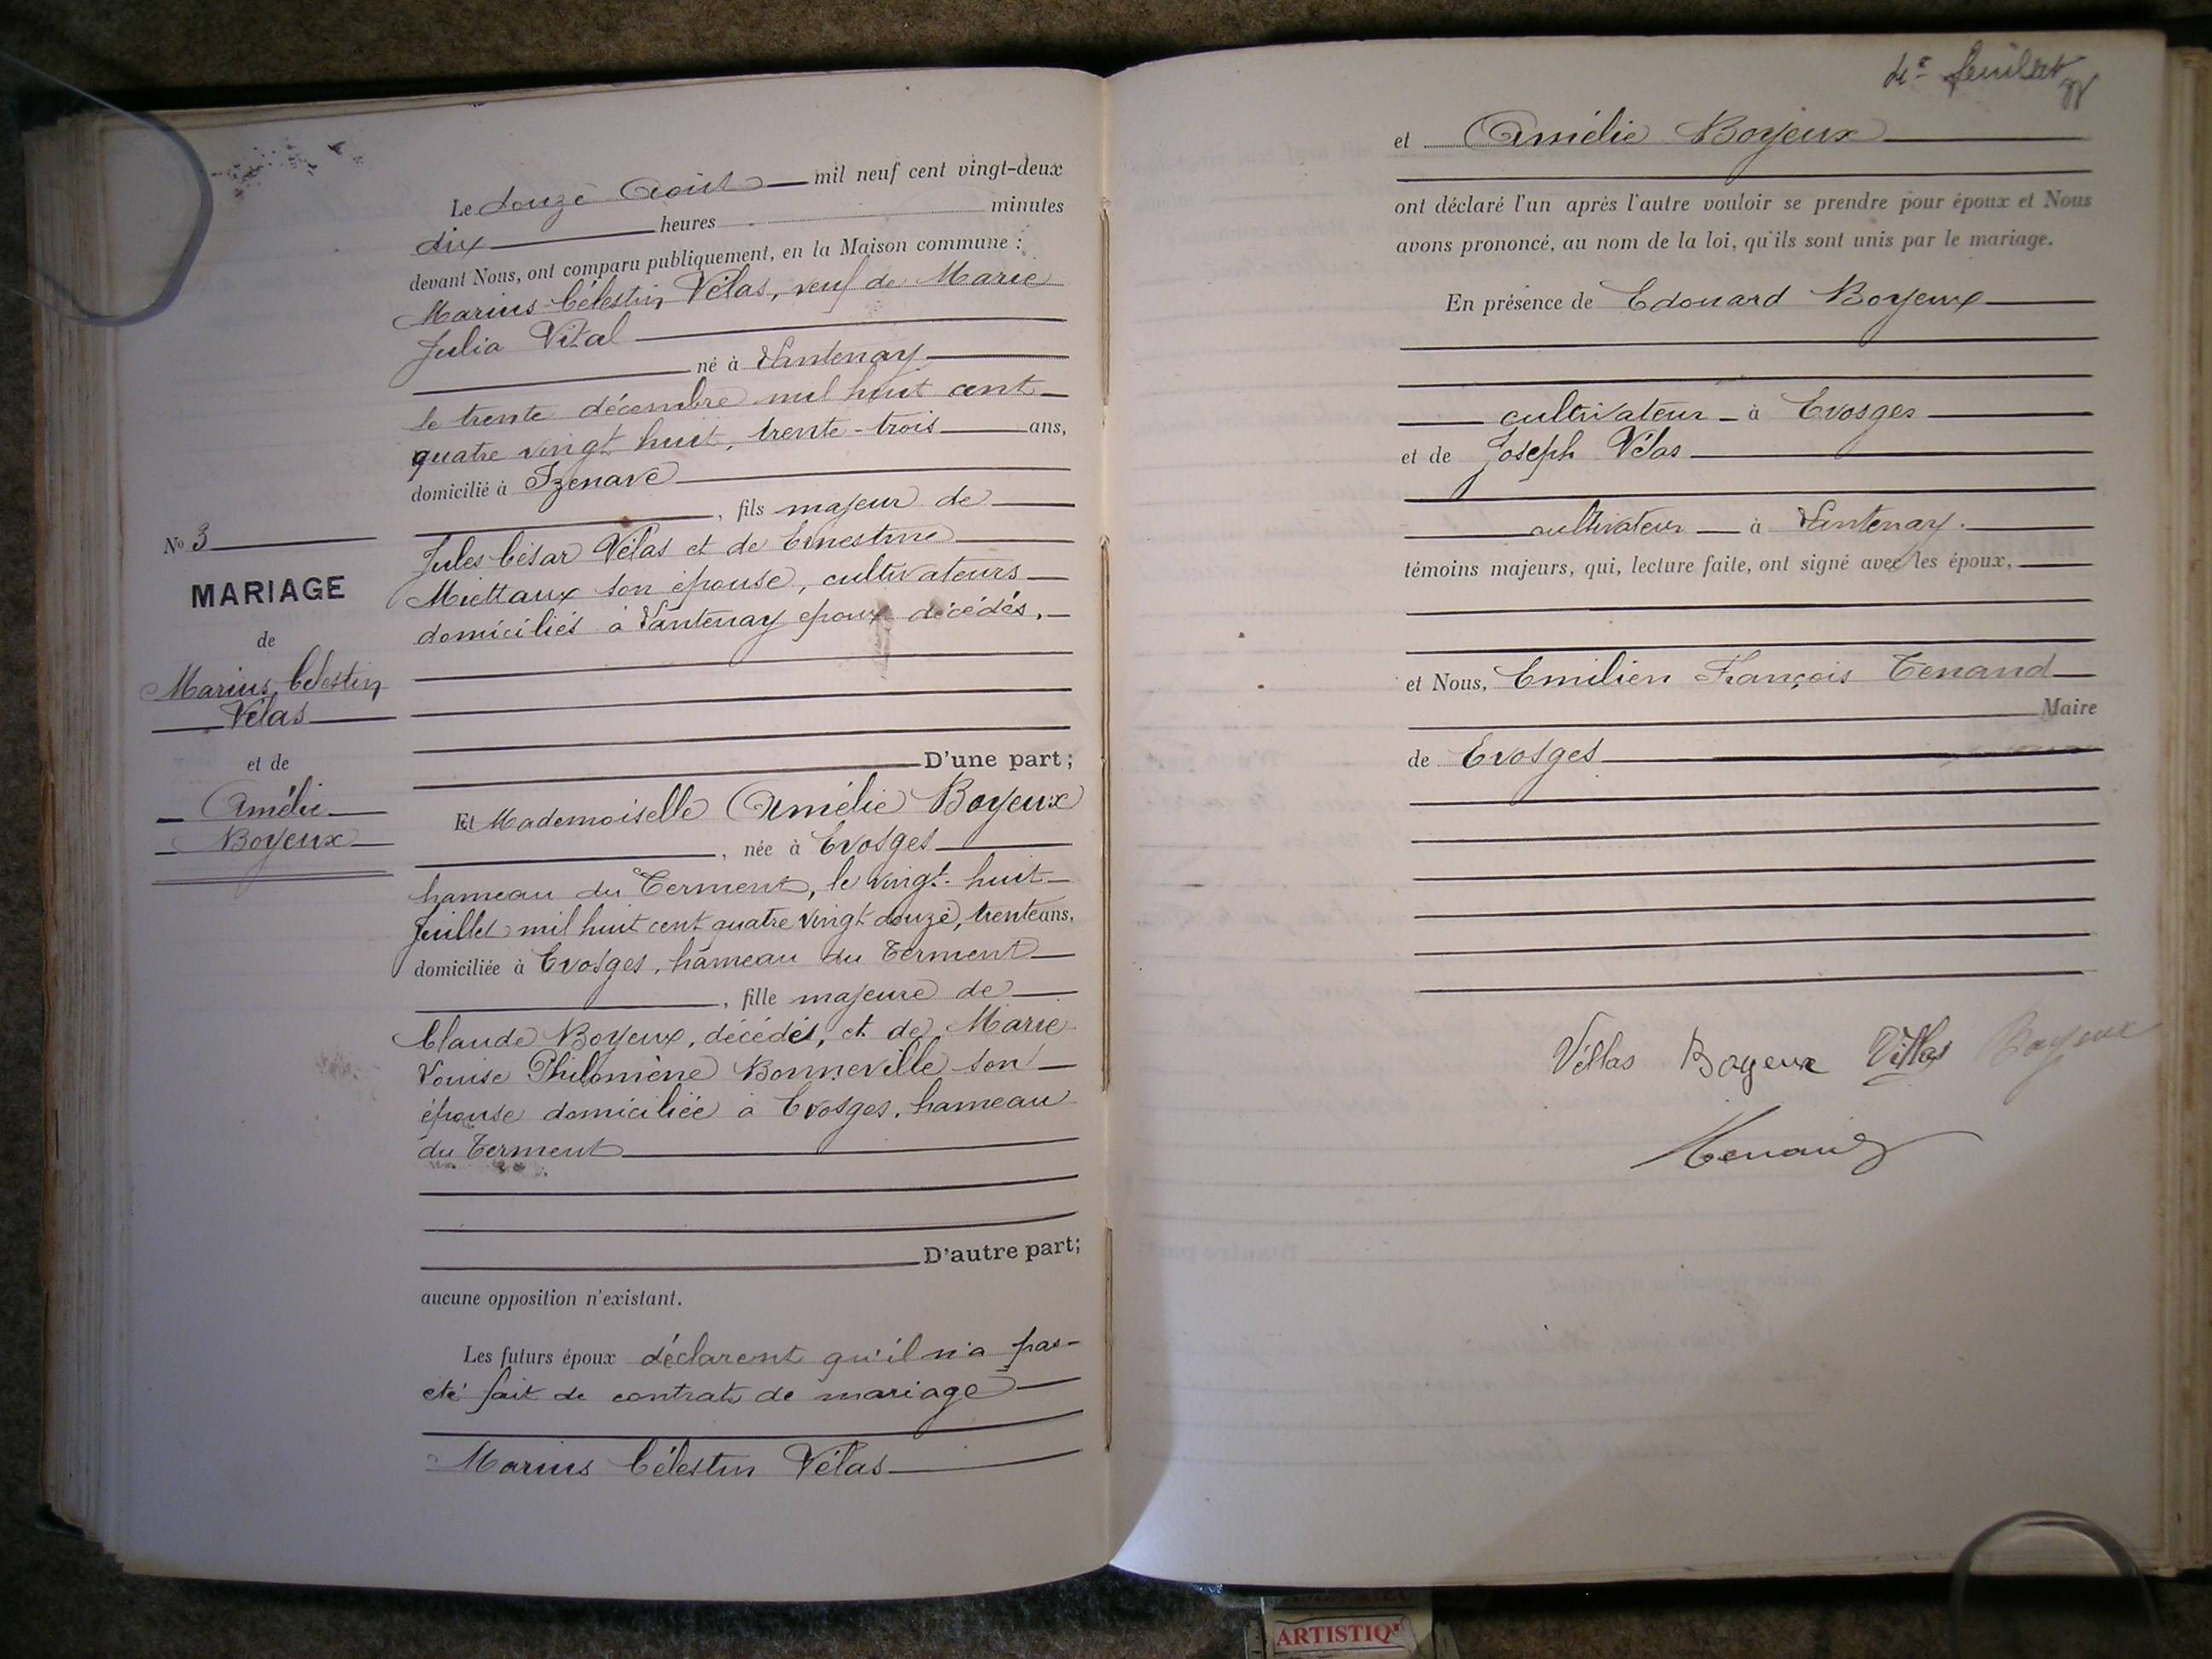 No 3
MARIAGE
de
Marius Célestin
Vélas
et de
Amélie
Boyeux
Le douze Août mil neuf cent vingt-deux
dix heures minutes
devant Nous, ont comparu publiquement, en la Maison commune :
Marius Célestin Vélas, veuf de Marie
Julia Vital
né à Lantenay
le trente décembre mil huit cent
quatre vingt huit, trente-trois ans,
domicilié à Izenave
, fils majeur de
Jules César Vélas et de Ernestine
Miettaux son épouse, cultivateurs
domiciliés à Lantenay epoux décédés.
D'une part;
Et Mademoiselle Amélie Boyeux
, née à Evosges
hameau du Terment, le vingt-huit
Juillet mil huit cent quatre vingt douze, trente ans,
domiciliée à Evosges, hameau du Terment
, fille majeure de
Claude Boyeux, décédés, et de Marie
Louise Philomène Bonneville son
épouse domiciliée à Evosges, hameau
du Terment
D'autre part;
aucune opposition n'existant.
Les futurs époux déclarent qu'il n'a pas
eté fait de contrat de mariage
Marius Célestin Vélas
4e feuillet
et Amélie Boyeux
ont déclaré l'un après l'autre vouloir se prendre pour époux et Nous
avons prononcé, au nom de la loi, qu'ils sont unis par le mariage.
En présence de Edouard Boyeux
cultivateur à Evosges
et de Joseph Vélas
cultivateur à Lantenay.
témoins majeurs, qui, lecture faite, ont signé avec les époux,
et Nous, Emilien François Tenand
Maire
de Evosges
Vellas Boyeux Vellas Boyeux
Tenand
ARTISTIQ